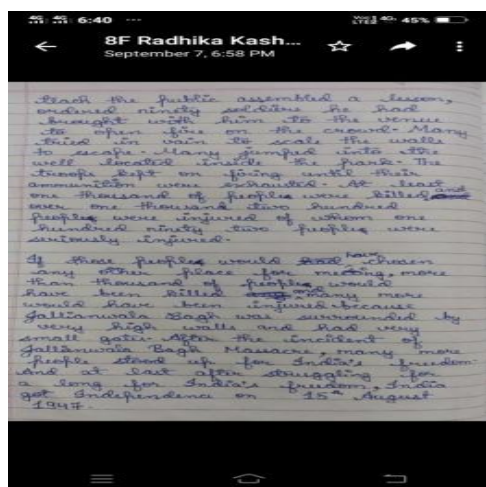 6:40 ... 45%
8F Radhika Kash...
September 7, 6:58 PM
teach the public assembled a lesson,
ordered ninety soldiers he had
brought with him to the venue
to open fire on the crowd. Many
tried in vain to scale the walls
to escape. Many jumped into the
well located inside the park. The
troops kept on firing until their
ammunition were exhausted. At least
one thousand of peoples were killed and
over one thousand two hundred
peoples were injured of whom one
hundred ninety two peoples were
seriously injured.
If those peoples would have chosen
any other place for meeting, more
than thousand of peoples would
have been killed and many more
would have been injured because
Jallianwala Bagh was surrounded by
very high walls and had very
small gates. After the incident of
Jallianwala Bagh Massacre, many more
people stood up for India's freedom.
And at last after struggling for
a long for India's freedom, India
got Independence on 15th August
1947.